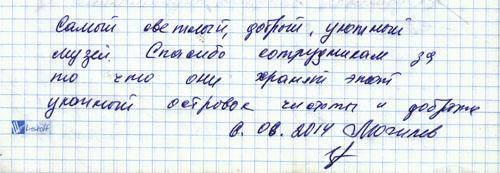 Самый светлый, добрый, уютный
музей. Спасибо сотрудникам за
то что они хранят этот
уютный островок чистоты и добра
08. 2014 Могилев